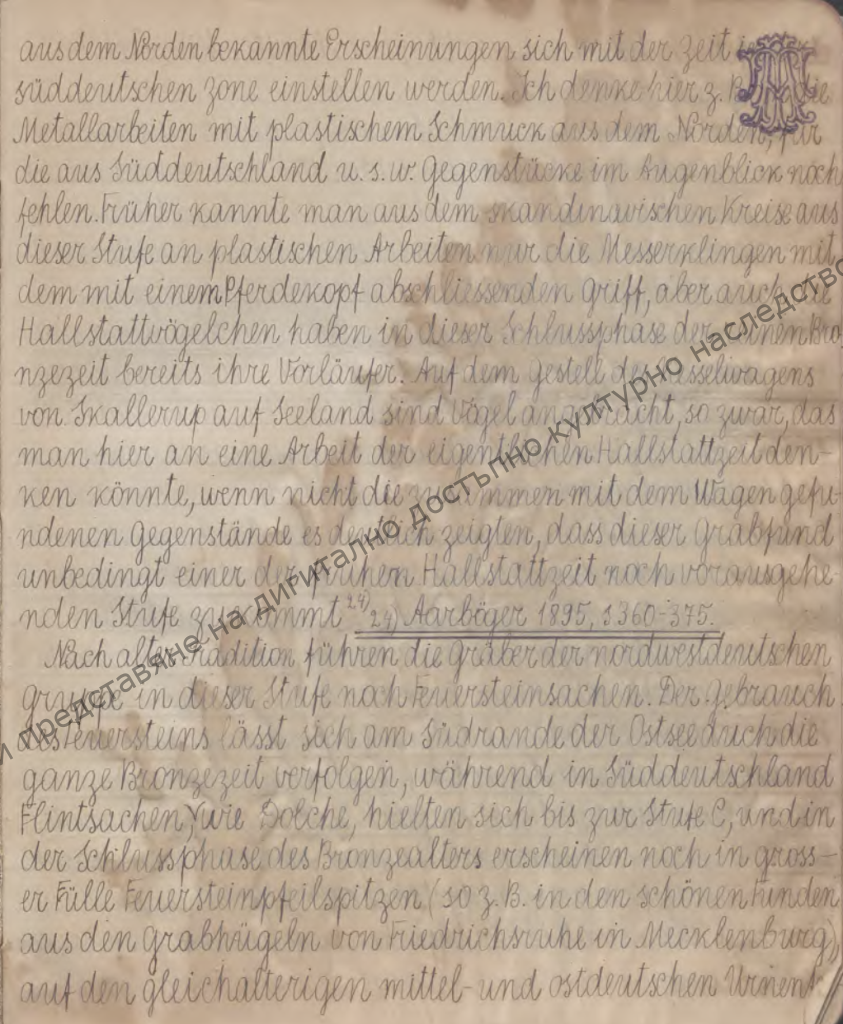 aus dem Norden bekannte Erscheinungen sich mit der Zeit in
süddeutschen Zone einstellen werden. Ich denke hier z. B. die
Metallarbeiten mit plastischem Schmuck aus dem Norden, für
die aus Süddeutschland u. s. w. Gegenstücke im Augenblick noch
fehlen. Früher kannte man aus dem skandinavischen Kreise aus
dieser Stufe an plastischen Arbeiten nur die Messerklingen mit
dem mit einem Pferdekopf abschliessenden Griff, aber auch die
Hallstattvögelchen haben in dieser Schlussphase der reinen Bro
nzezeit bereits ihre Vorläufer. Auf dem Gestell des Kesselwagens
von Skallerup auf Seeland sind Vögel angebracht, so zwar, das
man hier an eine Arbeit der eigentlichen Hallstattzeit den-
ken könnte, wenn nicht die zusammen mit dem Wagen gefu-
ndenen Gegenstände es deutlich zeigten, dass dieser Grabfund
unbedingt einer der frühen Hallstattzeit noch vorausgehe-
nden Stufe zukommt 24) 24) Aarböger 1895, S 360-375.
Nach alter Tradition führen die Gräber der nordwestdeutschen
gruppe in dieser Stufe noch Feuersteinsachen. Der Gebrauch
des Feuersteins lässt sich am Südrande der Ostsee duch die
ganze Bronzezeit verfolgen, während in Süddeutschland
Flintsachen, wie Dolche, hielten sich bis zur Stufe C, und in
der Schlussphase des Bronzealters erscheinen noch in gross-
er Fülle Feuersteinpfeilspitzen (so z. B. in den schönen Funden
aus den Grabhügeln von Friedrichsruhe in Mecklenburg),
auf den gleichalterigen mittel- und ostdeutschen Urnenf-
и представяне на дигитално достъпно културно наследство